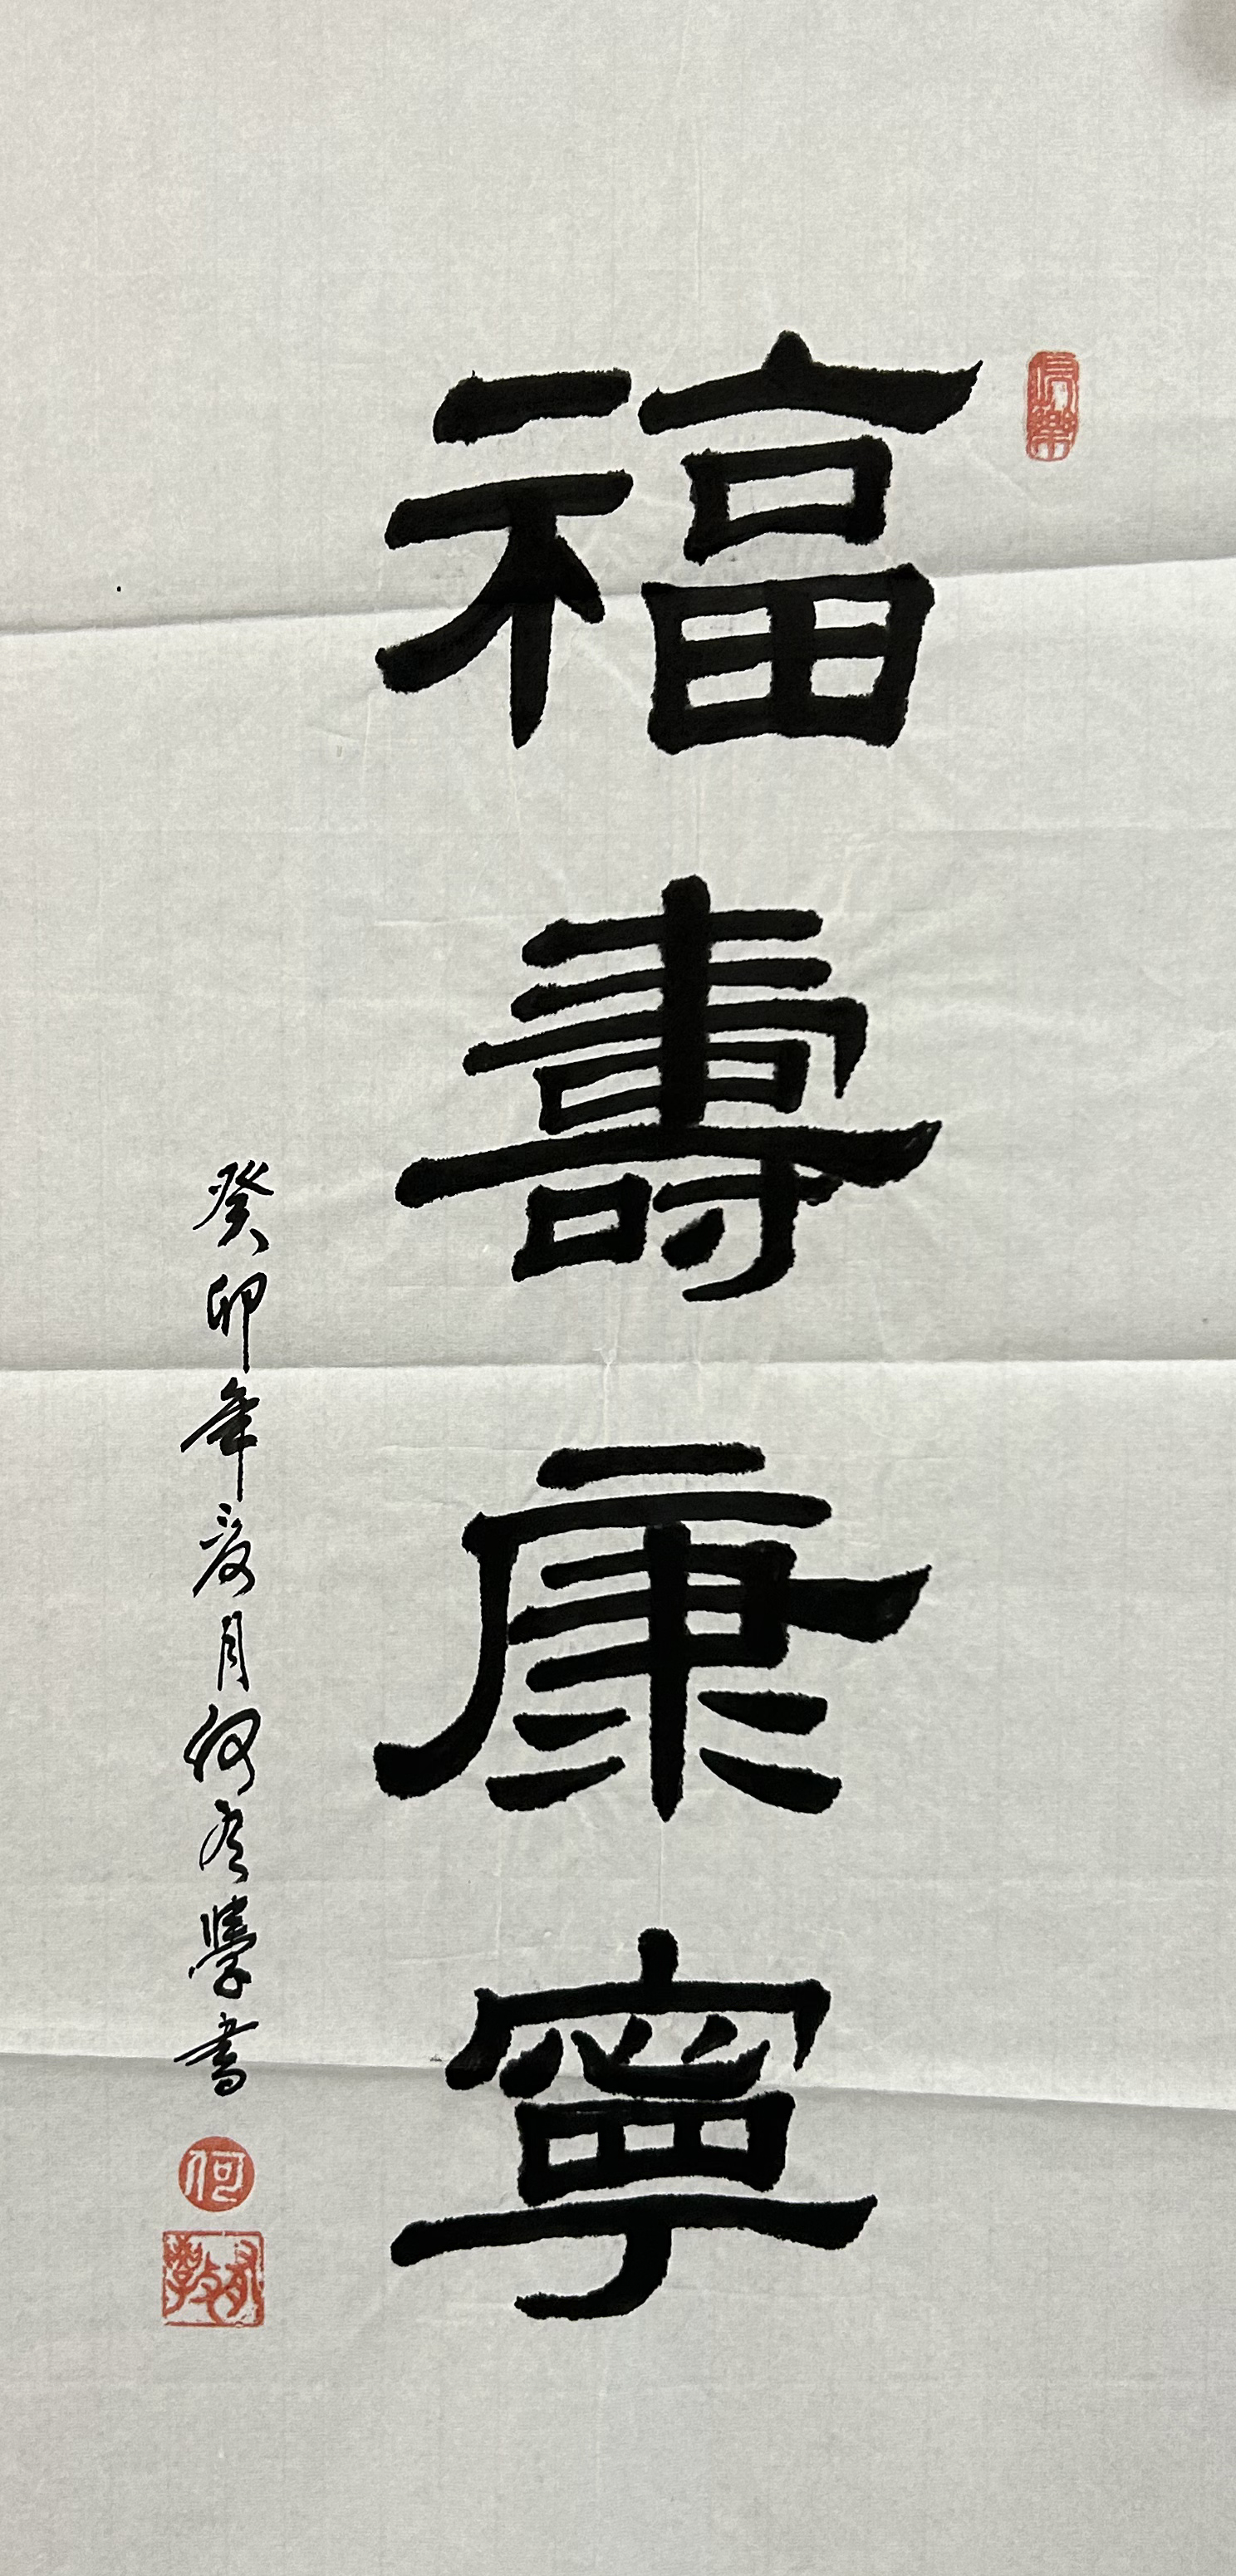 福壽康寧
癸卯年夏月何有學書
何
有學